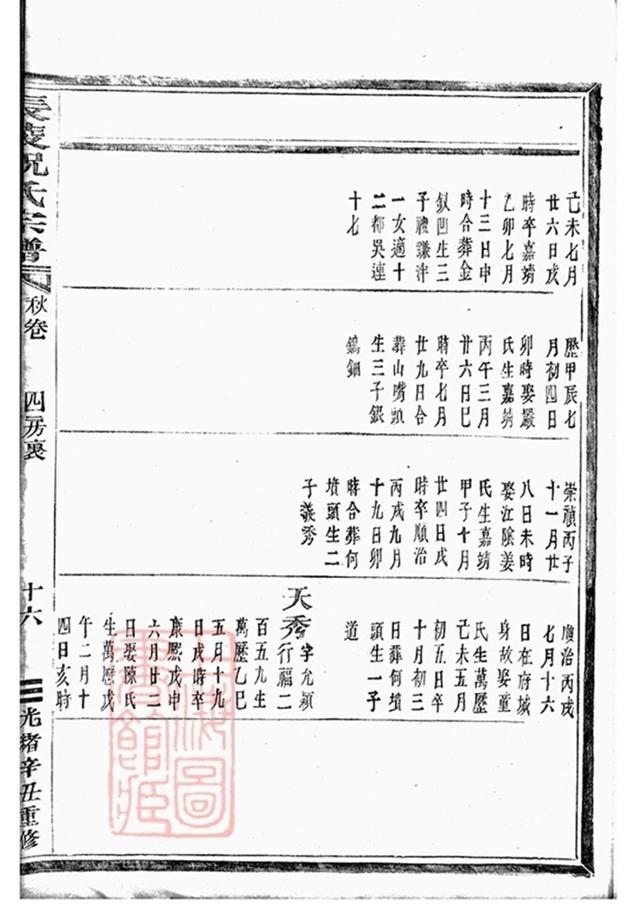 己未七月
廿六日戌
時卒嘉靖
乙卯七月
十三日申
時合葬金
釵凹生三
子禮謙泮
一女適十
二都吳連
十七
歷甲辰七
月初四日
卯時娶嚴
氏生嘉靖
丙午三月
廿六日巳
時卒七月
廿九日合
葬山嘴頭
生三子銀
鎢鈿
崇禎丙子
十一月廿
八日未時
娶江陰姜
氏生嘉靖
甲子十月
廿四日戌
時卒順治
丙戌九月
十九日卯
時合葬何
墳頭生二
子義秀
順治丙戌
七月十六
日在府城
身故娶童
氏生萬歷
己未五月
初五日卒
十月初三
日葬何墳
頭生一子
道
天秀字允穎
行福二
百五九生
萬歷乙巳
五月十九
日戌時卒
康熙戊申
六月廿二
日娶陳氏
生萬歷戊
午二月十
四日亥時
長陵祝氏宗譜
秋卷
四房裏
十六
光緒辛丑重修